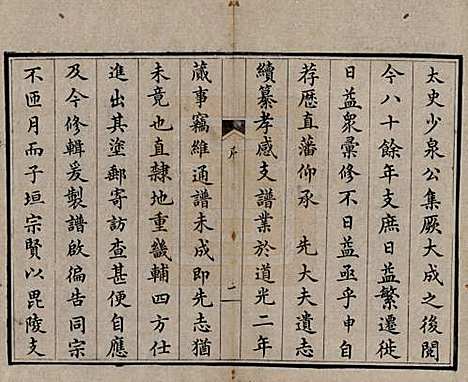 太史少泉公集厥大成之後閱
今八十餘年支庶日益繁遷徙
日益衆彙修不日益亟乎申自
荐歴直藩仰承 先大夫遺志
續纂孝感支譜業於道光二年
序
二
蕆事竊維通譜未成即先志猶
未竟也直隸地重畿輔四方仕
進出其塗郵寄訪查甚便自應
及今修輯爰製譜啟徧告同宗
不匝月而子垣宗賢以毘陵支